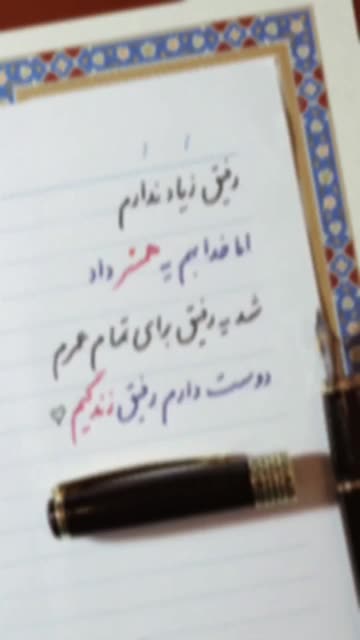 رفیق زیاد ندارم
اما خدا بهم یه همسر داد
شد یه رفیق برای تمام عمرم
دوست دارم رفیق زندگیم